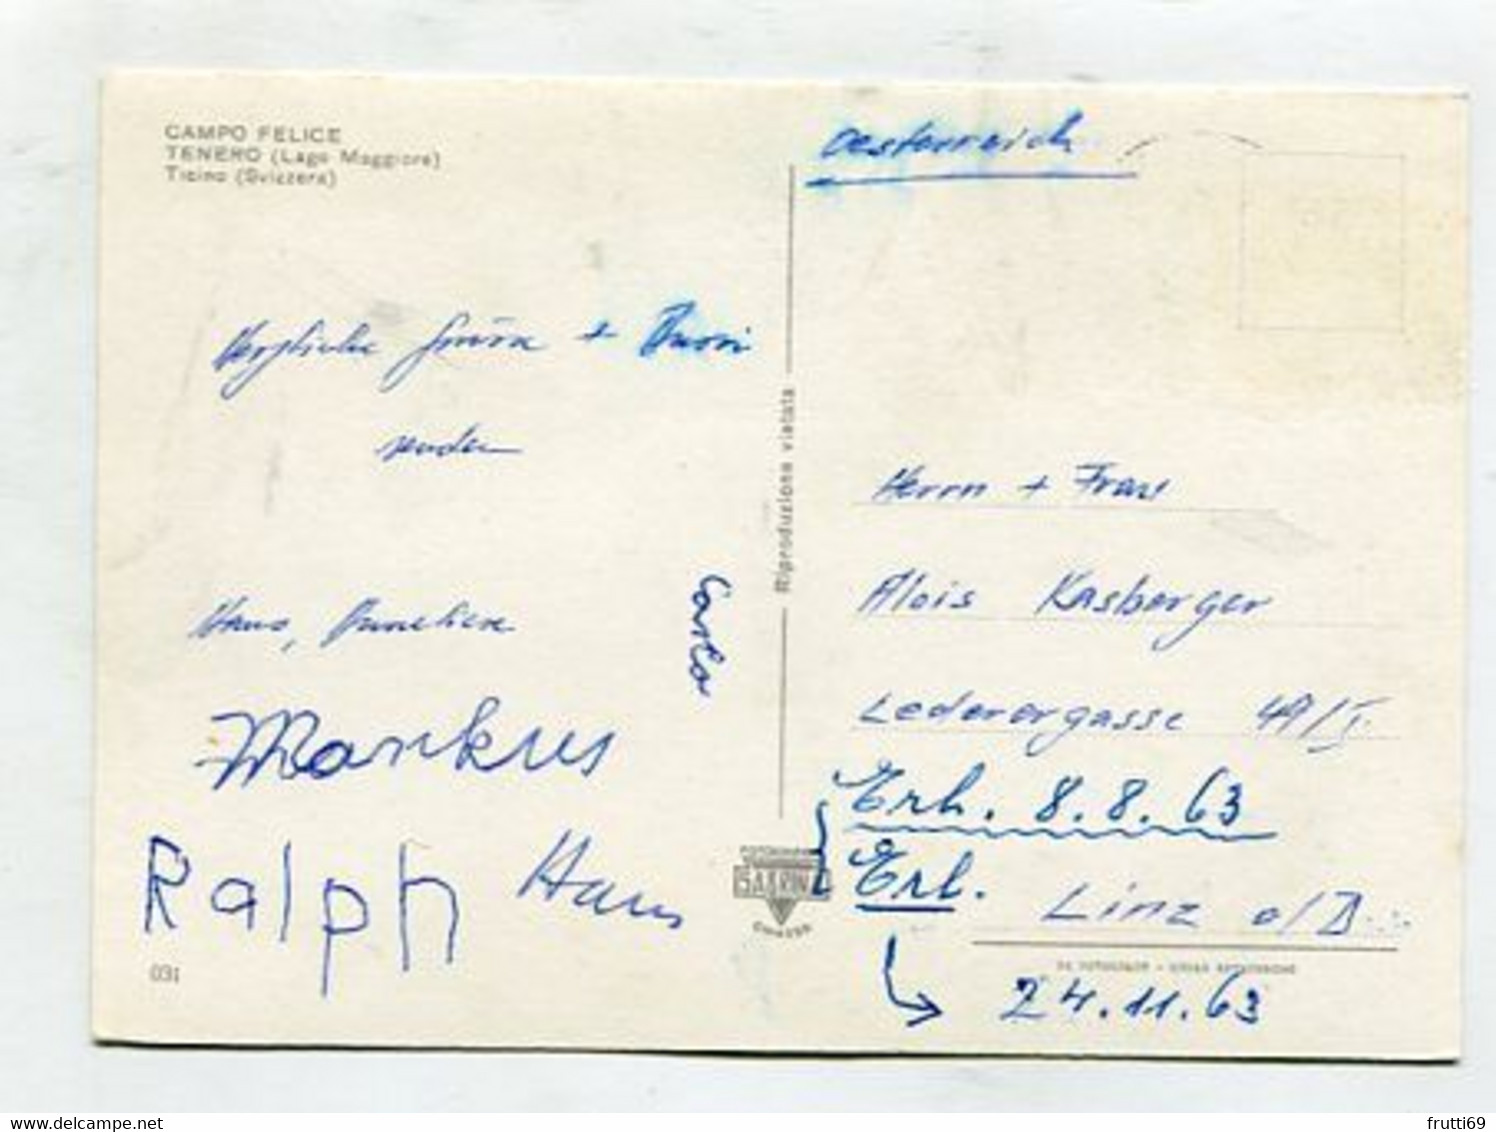 CAMPO FELICE
TENERO (Lago Maggiore)
Ticino (Svizzera)
Herzliche Grüsse + Bussi
senden
Hans, Anneliese
Markus
Ralph Hans
Carlo
031
Riproduzione vietata
Oesterreich
Herrn + Frau
Alois Kasberger
Lederergasse 49/I.
Erh. 8.8.63
Erl.
Linz a/D.
24.11.63
frutti69